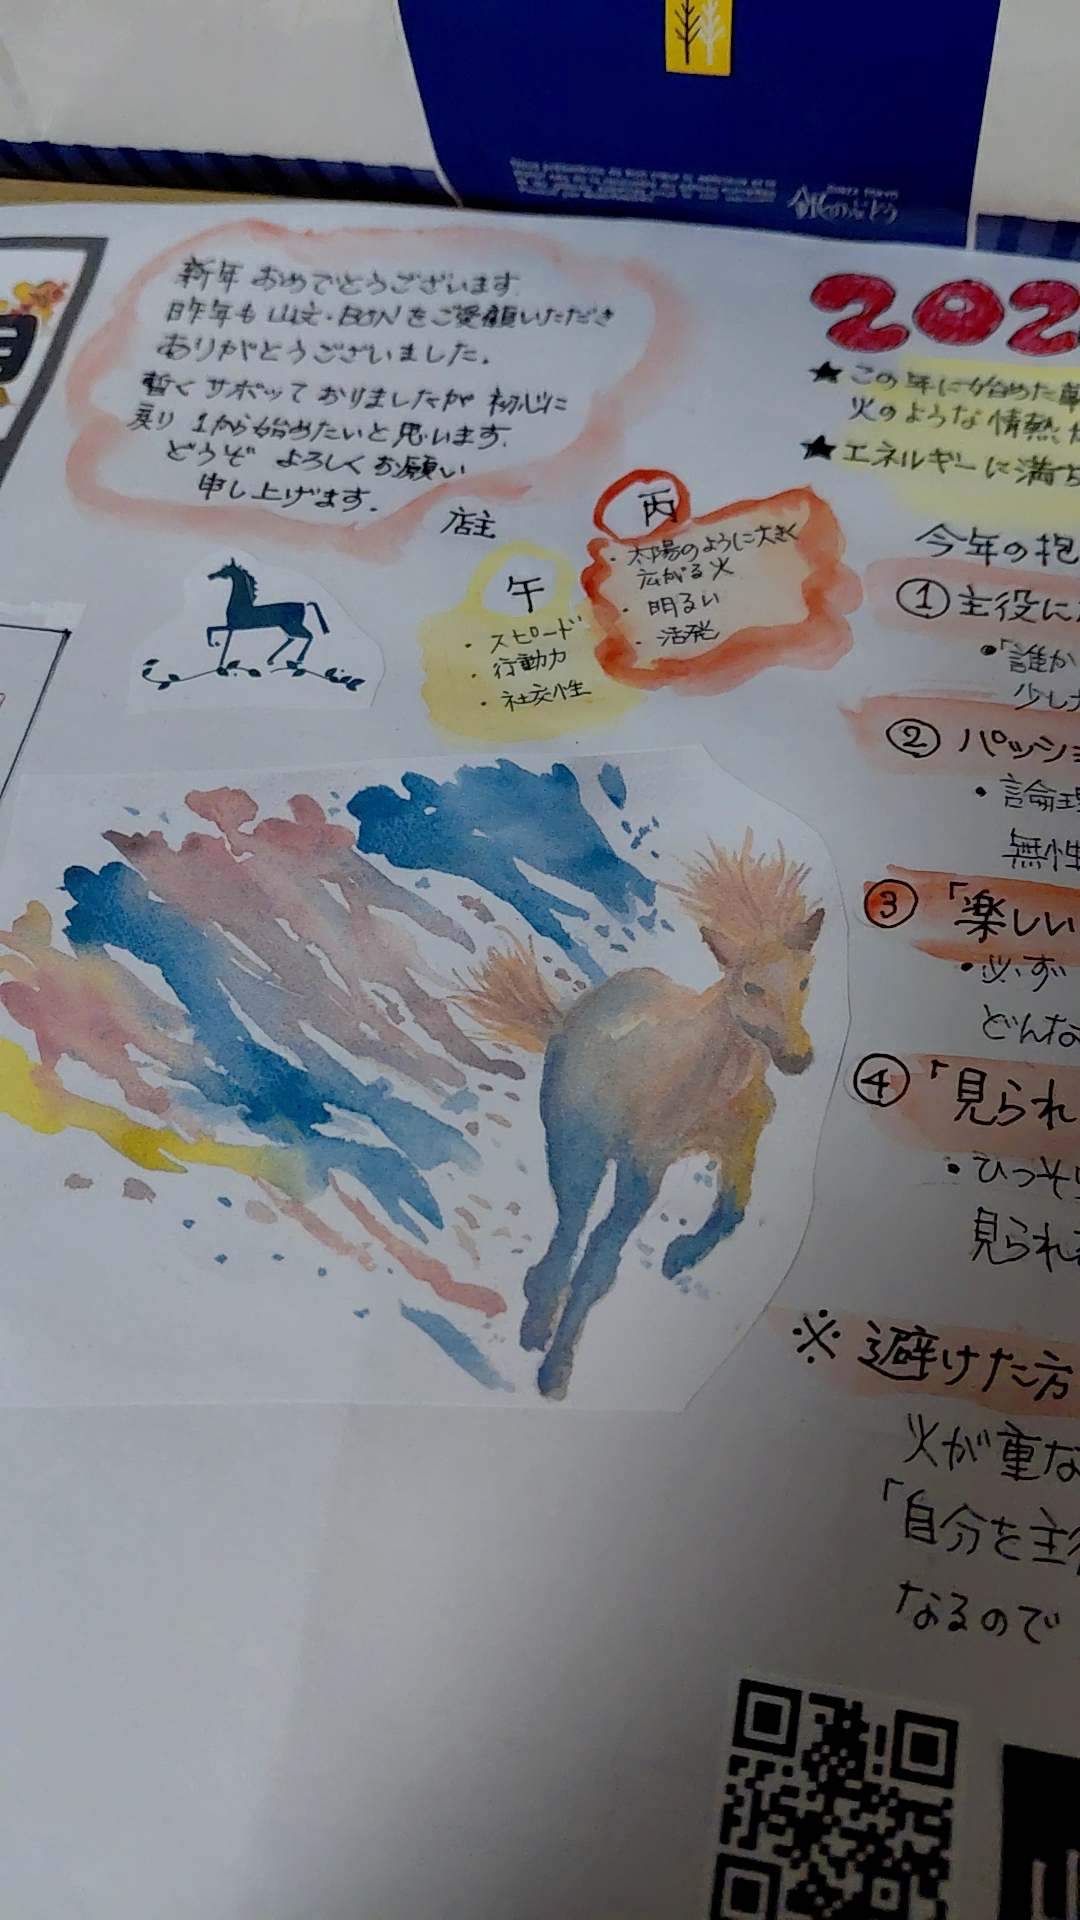 銀のぶどう
新年 おめでとうございます
昨年も 山文・BUNをご愛顧いただき
ありがとうございました。
暫く サボッて おりましたが 初心に
戻り 1から始めたいと思います。
どうぞ よろしくお願い
申し上げます。
店主
午
・スピード
・行動力
・社交性
丙
・太陽のように大きく
広がる火
・明るい
・活発
202
★この年に始めた
火のような情熱
★エネルギーに満ち
今年の抱
① 主役に
•「誰か
少し
② パッショ
• 論理
無性
③ 「楽しい
• 必ず
どんな
④ 「見られ
• ひっそり
見られ
※ 避けた方
火が重な
「自分を主
なるので